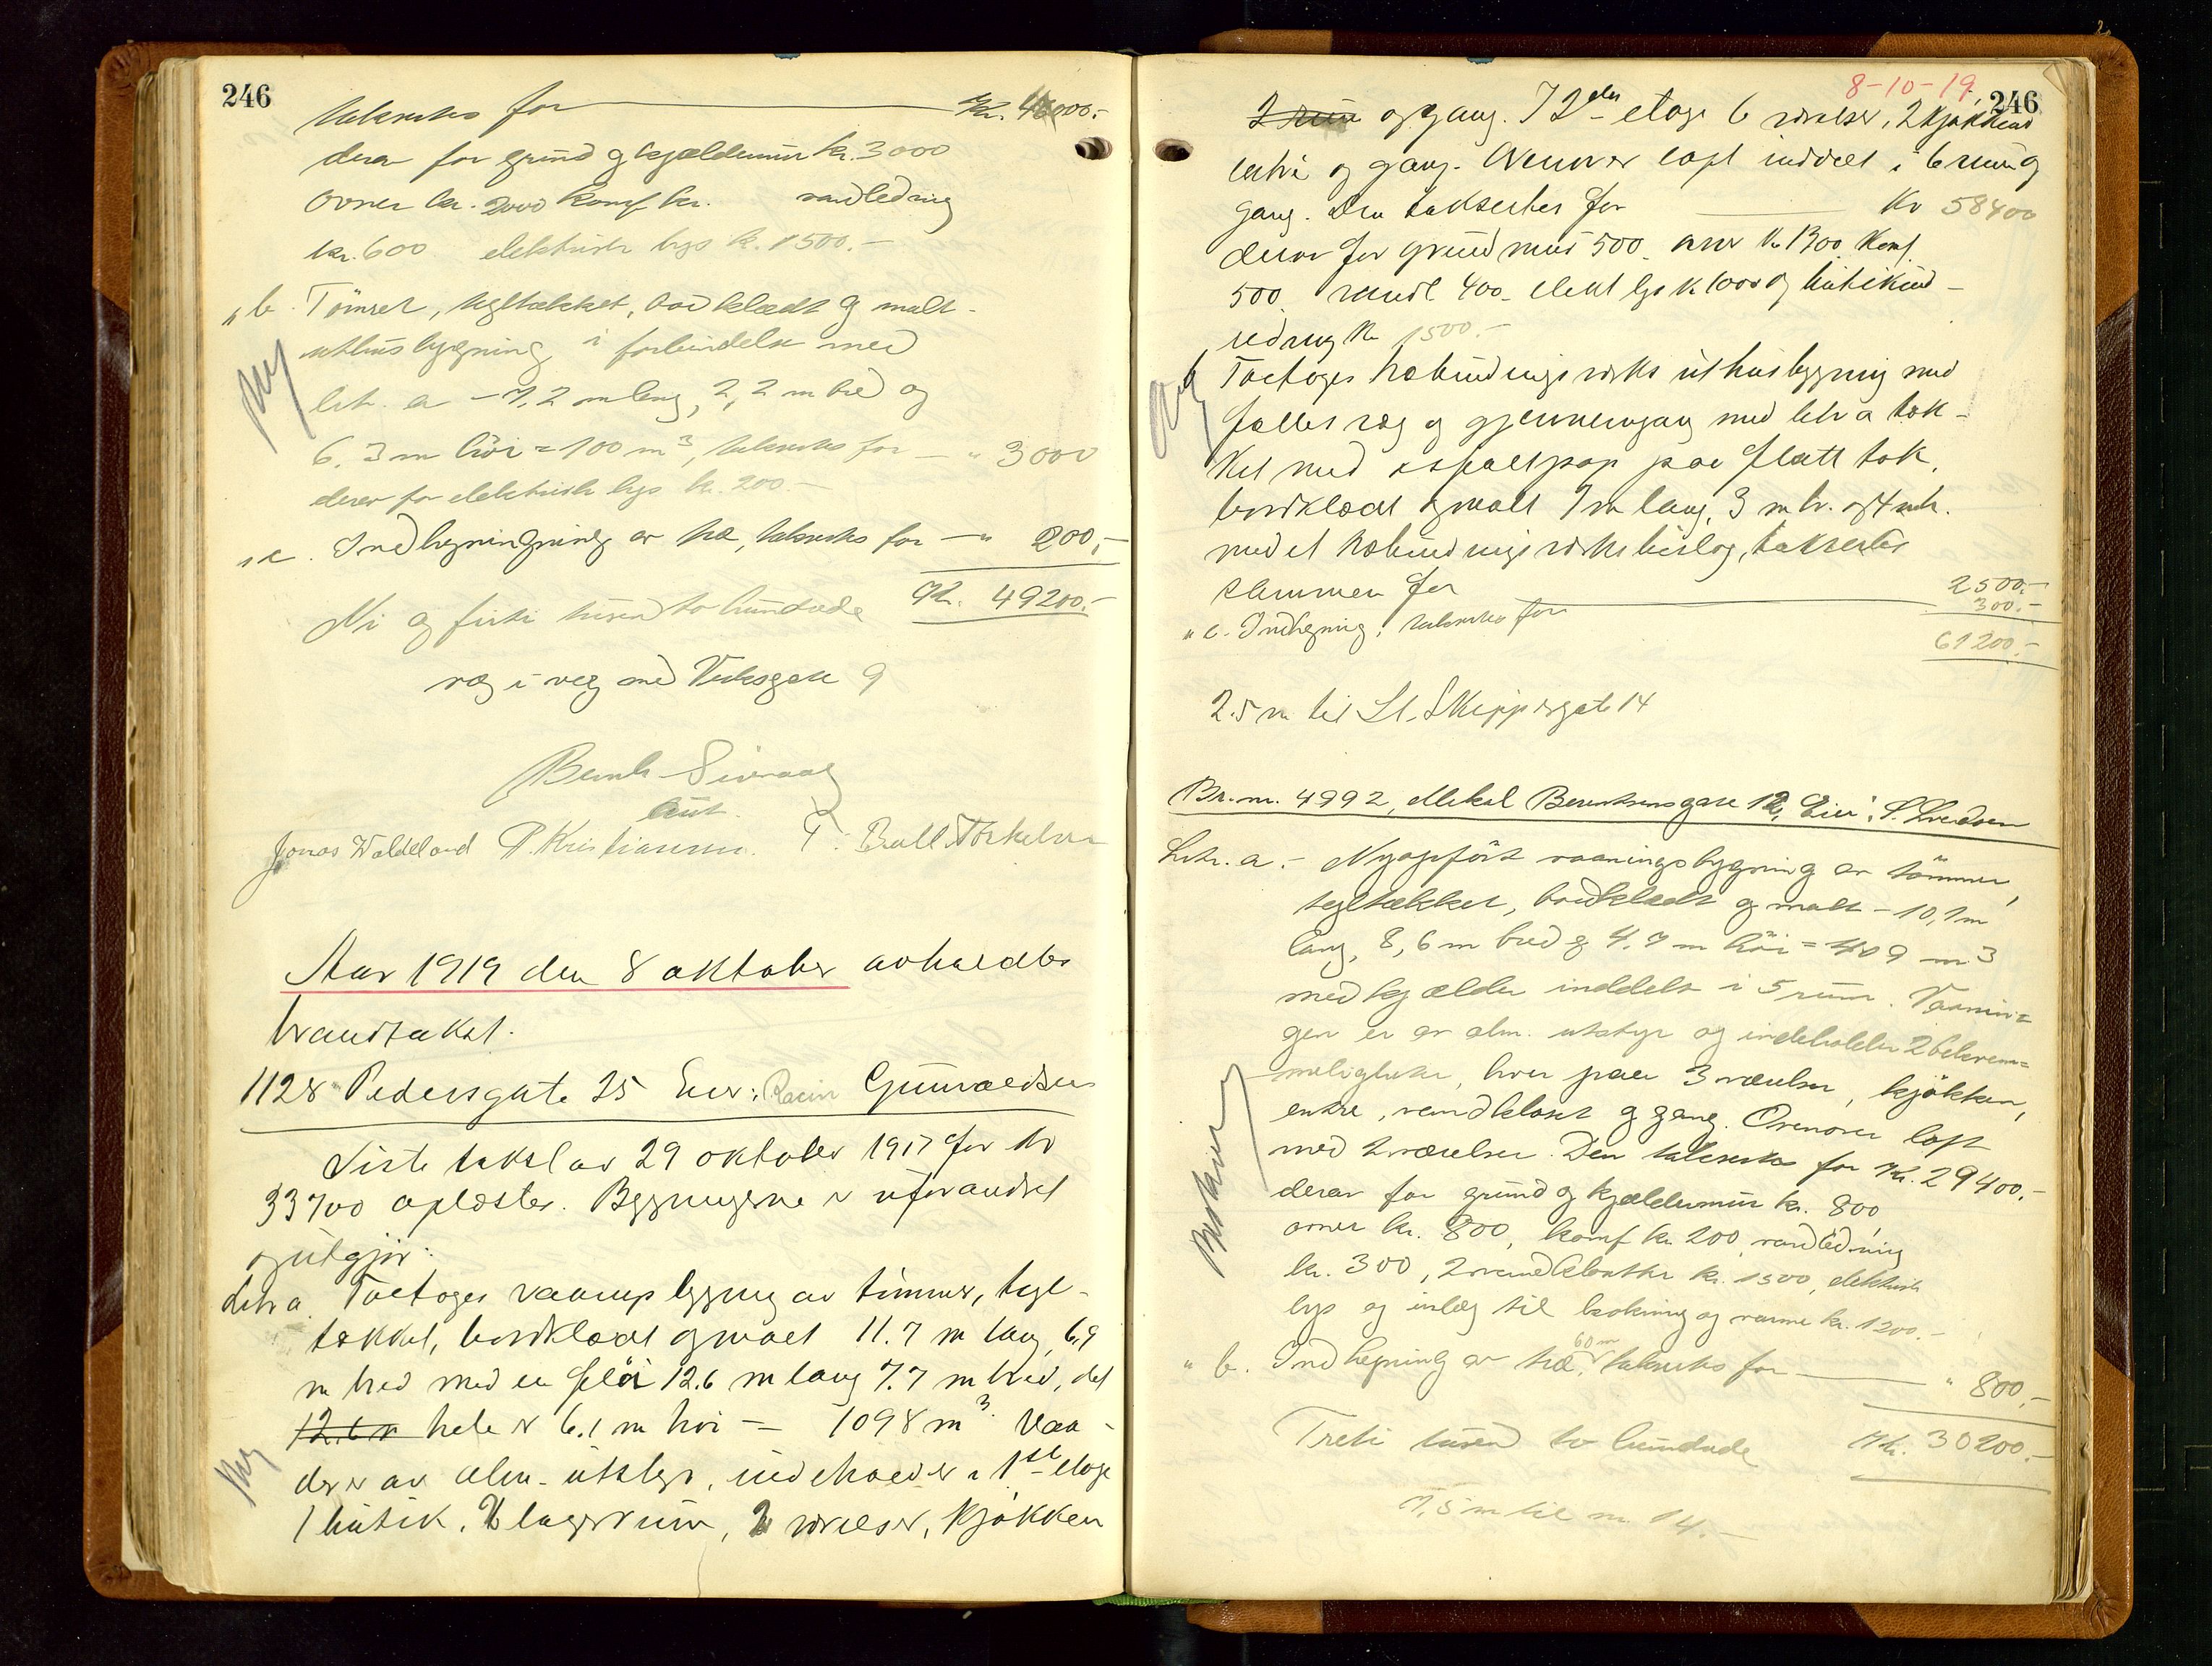 246
takseres for Kr. 46000.-
derav for grund og kjældermur kr. 3000
ovner kr. 2000 komf. kr. vandledning
kr. 600 elektrisk lys k. 1500.-
" b. Tömret, tegltækket, bordklædt og malt
uthusbygning i forbindelse med
litr. a - 7,2 m lang, 2,2 m bred og
6.3 m höi = 100 m³, takseres for - " 3000
derav for elektrisk lys kr. 200 -
" c. Indhegningning av træ, takseres for - " 200,-
Kr. 49200.-
Ni og firti tusen to hundrede
væg i væg med Verksgate 9
Bernh Sivraag
Jonas Waldeland P. Kristiansen. T. Bull Torkelsen
Aar 1919 den 8 oktober avholdtes
brandtakst.
1128 Pedersgate 25 Eier: Gunvaldsen
Siste takst av 29 oktober 1917 for kr
33700 oplæstes. Bygningerne er uforandret
og utgjör:
Litr a Toetages vaaningsbygning av tømmer, tegl-
tækket, bordklædt og malt 11.7 m lang 6,9
m bred med en fløi 12.6 m lang 7.7 m bred, det
12.6 m hele er 6.1 m høi - 1098 m³. Vaa-
der er av alm. utstyr, indeholder i 1ste etage
1 butik, 2 lagerrum, 2 værelser, kjøkken
Ny
Ny
8-10-19
246
2 rum og gang. I 2den etage 6 værelser, 2 kjøkkener
entre og gang. Ovenover loft inddelt i 6 rum og
gang. Den takseres for Kr 58400
derav for grundmur 500. ovner kr 1300 Komf.
500. vandl 400. elekt lys kr 1000 og butikind-
redning kr 1500.-
b Toetages træbindingsverks uthusbygning med
fælles væg og gjennemgang med litr a tæk-
ket med asfaltpap paa flatt tak,
bordklædt og malt 7 m lang, 3 m br. og 4 m h.
med et træbindingsverks bislag, takseres
sammen for 2500.-
" c. Indhegning, takseres for 300.-
61200.-
2.5 m til St. Skippergate 14
Br. nr. 4992, Mikal Berentsens gate 12, Eier: S. Svendsen
Litr. a. - Nyopfört vaaningsbygning av tömmer,
tegltækket, bordklædt og malt - 10,1 m
lang, 8,6 m bred og 4.7 m höi = 409 m3
med kjælder inddelt i 5 rum. Vaanin=
gen er av alm. utstyr og indeholder 2 bekvem=
meligheter, hver paa 3 værelser, kjökken,
entre, vandkloset og gang. Ovenover loft
med 2 værelser. Den takseres for Kr. 29400.-
derav for grund og kjældermur kr. 800,
ovner kr. 800, komf kr. 200, vandledning
kr. 300, 2 vandklosetter kr. 1500, elektrisk
lys og inlæg til kokning og varme kr. 1200.-
" b. Indhegning av træ, 60 m takseres for " 800,-
Treti tusen to hundrede Kr. 30200.-
7,5 m til nr. 14.-